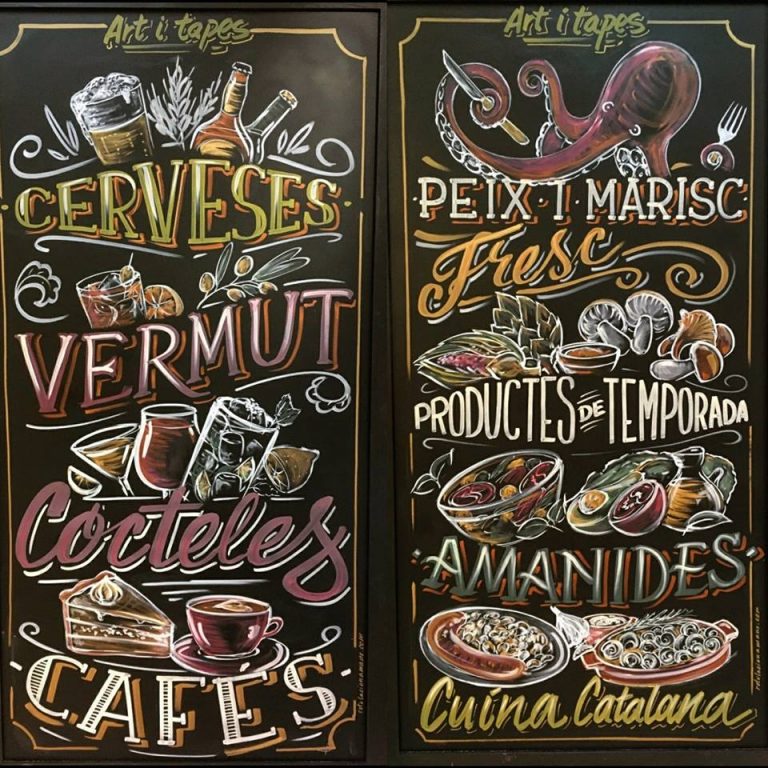 Art i tapes
CERVESES
VERMUT
Cocteles
CAFÉS
Art i tapes
PEIX·I·MARISC
Fresc
PRODUCTES DE TEMPORADA
AMANIDES
Cuina Catalana